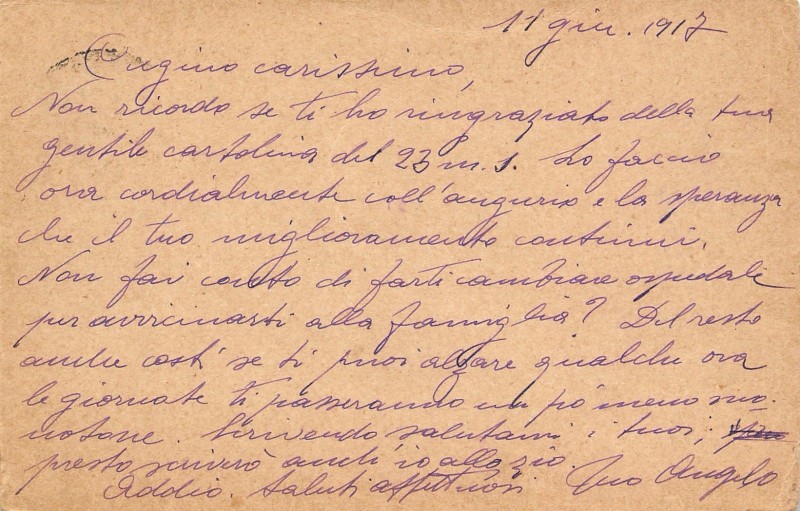 11 giu. 1917
Cugino carissimo,
Non ricordo se ti ho ringraziato della tua
gentile cartolina del 23 m. s. Lo faccio
ora cordialmente coll'augurio e la speranza
che il tuo miglioramento continui.
Non fai conto di farti cambiare ospedale
per avvicinarti alla famiglia? Del resto
anche costì se ti puoi alzare qualche ora
le giornate ti passeranno un pò meno mo-
notone. Scrivendo salutami i tuoi;
presto scriverò anch'io allo zio.
Addio. Saluti affettuosi Tuo Angelo